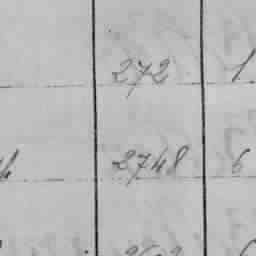 272 1
2748 6